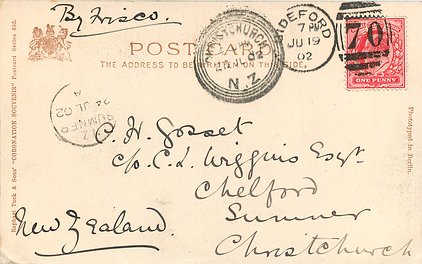 By Frisco.
POST CARD
THE ADDRESS TO BE WRITTEN ON THIS SIDE.
CHRISTCHURCH
N.Z
BIDEFORD
7 PM
JU 19
02
70
ONE PENNY
SUMNER
N.Z
A
24 JL 02
Raphael Tuck & Sons' "CORONATION SOUVENIR" Postcard Series
Phototyped in Berlin.
A. H. Gosset
c/o C. L. Wiggins Esqr.
Chelford
Sumner
Christchurch
New Zealand.